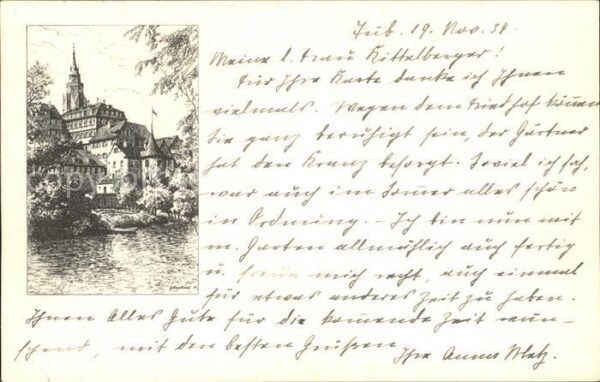 Tüb. 19. Nov. 34
Meine l. Frau Kittelberger!
Für Ihre Karte danke ich Ihnen
vielmals. Wegen dem Friedhof können
Sie ganz beruhigt sein, der Gärtner
hat den Kranz besorgt. Soviel ich sah,
war auch im Sommer alles schön
in Ordnung. – Ich bin nun mit
m. Garten allmählich auch fertig
u. freue mich recht, auch einmal
für etwas anderes Zeit zu haben.
Ihnen Alles Gute für die kommende Zeit wün-
schend, mit den besten Grüßen
Ihre Anna